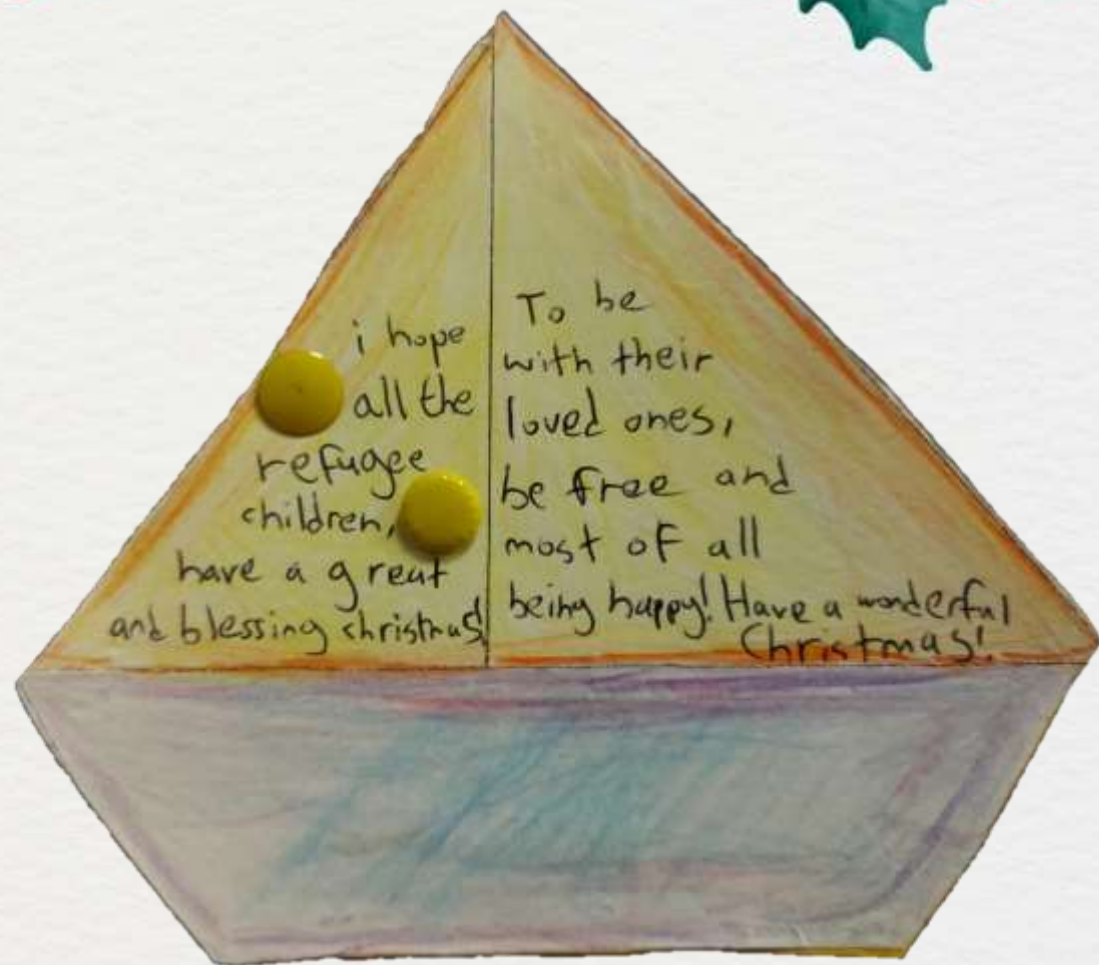 i hope
all the
refugee
children,
have a great
and blessing christmas!
To be
with their
loved ones,
be free and
most of all
being happy! Have a wonderful
Christmas!